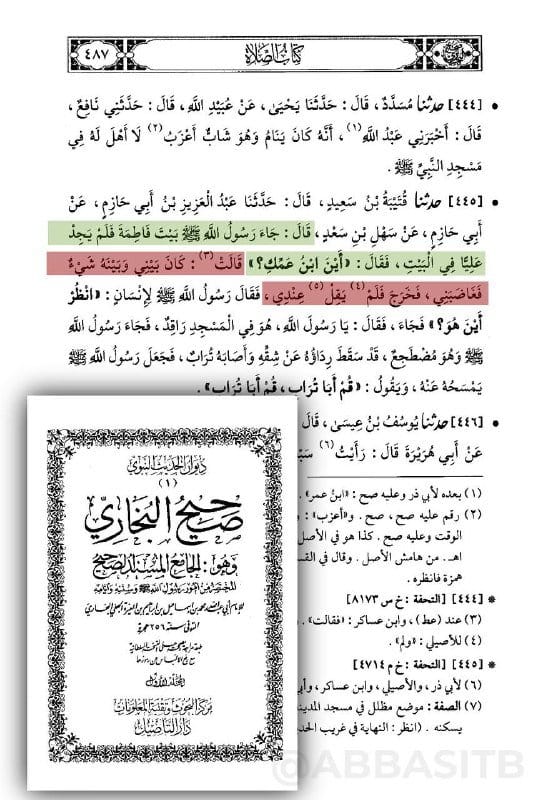 كتاب الصلاة
٤٨٧
• [٤٤٤] حدثنا مُسَدَّدٌ، قَالَ: حَدَّثَنَا يَحْيَى، عَنْ عُبَيْدِ اللَّهِ، قَالَ: حَدَّثَنِي نَافِعٌ،
قَالَ: أَخْبَرَنِي عَبْدُ اللَّهِ (١)، أَنَّهُ كَانَ يَنَامُ وَهُوَ شَابٌّ أَعْزَبُ (٢) لَا أَهْلَ لَهُ فِي
مَسْجِدِ النَّبِيِّ ﷺ.
• [٤٤٥] حدثنا قُتَيْبَةُ بْنُ سَعِيدٍ، قَالَ: حَدَّثَنَا عَبْدُ الْعَزِيزِ بْنُ أَبِي حَازِمٍ، عَنْ
أَبِي حَازِمٍ، عَنْ سَهْلِ بْنِ سَعْدٍ، قَالَ: جَاءَ رَسُولُ اللَّهِ ﷺ بَيْتَ فَاطِمَةَ فَلَمْ يَجِدْ
عَلِيًّا فِي الْبَيْتِ، فَقَالَ: «أَيْنَ ابْنُ عَمِّكِ؟» قَالَتْ (٣): كَانَ بَيْنِي وَبَيْنَهُ شَيْءٌ
فَغَاضَبَنِي، فَخَرَجَ فَلَمْ (٤) يَقِلْ (٥) عِنْدِي، فَقَالَ رَسُولُ اللَّهِ ﷺ لِإِنْسَانٍ: «انْظُرْ
أَيْنَ هُوَ؟» فَجَاءَ، فَقَالَ: يَا رَسُولَ اللَّهِ، هُوَ فِي الْمَسْجِدِ رَاقِدٌ، فَجَاءَ رَسُولُ اللَّهِ
ﷺ وَهُوَ مُضْطَجِعٌ، قَدْ سَقَطَ رِدَاؤُهُ عَنْ شِقِّهِ وَأَصَابَهُ تُرَابٌ، فَجَعَلَ رَسُولُ اللَّهِ
يَمْسَحُهُ عَنْهُ، وَيَقُولُ: «قُمْ أَبَا تُرَابٍ، قُمْ أَبَا تُرَابٍ».
• [٤٤٦] حدثنا يُوسُفُ بْنُ عِيسَى، قَالَ
عَنْ أَبِي هُرَيْرَةَ قَالَ: رَأَيْتُ (٦)
(١) بعده لأبي ذر وعليه صح: «ابن عمر».
(٢) رقم عليه صح، صح. و«أعزب»
الوقت وعليه صح. كذا هو في الأصل
اهـ. من هامش الأصل. وقال في
همزة فانظره.
* [٤٤٤] [التحفة: خ س ٨١٧٣]
(٣) عند (عط)، وابن عساكر: «فقالت».
(٤) للأصيلي: «ولم».
* [٤٤٥] [التحفة: خ م ٤٧١٤]
(٦) لأبي ذر، والأصيلي، وابن عساكر،
(٧) الصفة: موضع مظلل في مسجد
يسكنه. (انظر: النهاية في غريب
ديوان الحديث النبوي
(١)
صحيح البخاري
وهو: الجامع المسند الصحيح
المختصر من أمور رسول الله ﷺ وسننه وأيامه
المتوفى سنة ٢٥٦ هجرية
المجلد الأول
مركز البحوث وتقنية المعلومات
دار التأصيل
@ABBASITB